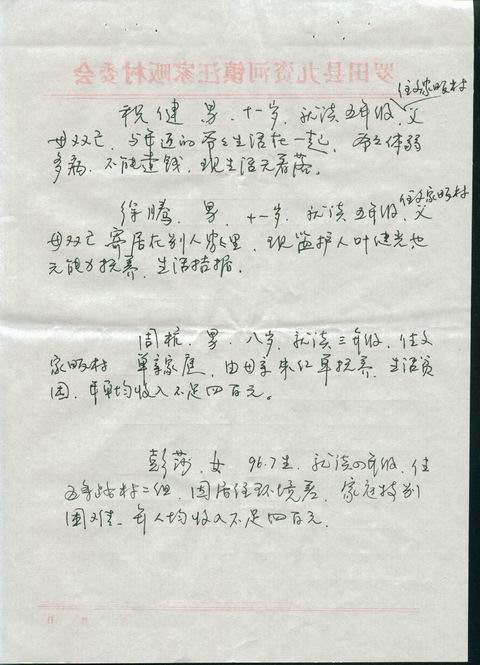 罗田县九资河镇汪家畈村委会
住文家畈村
祝健 男、十一岁、就读五年级、父
母双亡、与年迈的爷爷生活在一起、爷爷体弱
多病、不能赚钱、现生活无着落。
住文家畈村
徐腾、男、十一岁、就读五年级、父
母双亡 寄居在别人家里、现监护人叶健光也
无能力抚养、生活拮据。
周杭、男、八岁、就读三年级、住文
家畈村 单亲家庭、由母亲朱红单抚养、生活贫
困、年均收入不足四百元。
彭莎、女 96.7生、就读四年级、住
村二组、因居住环境差、家庭特别
困难、年人均收入不足四百元.
年 月 日